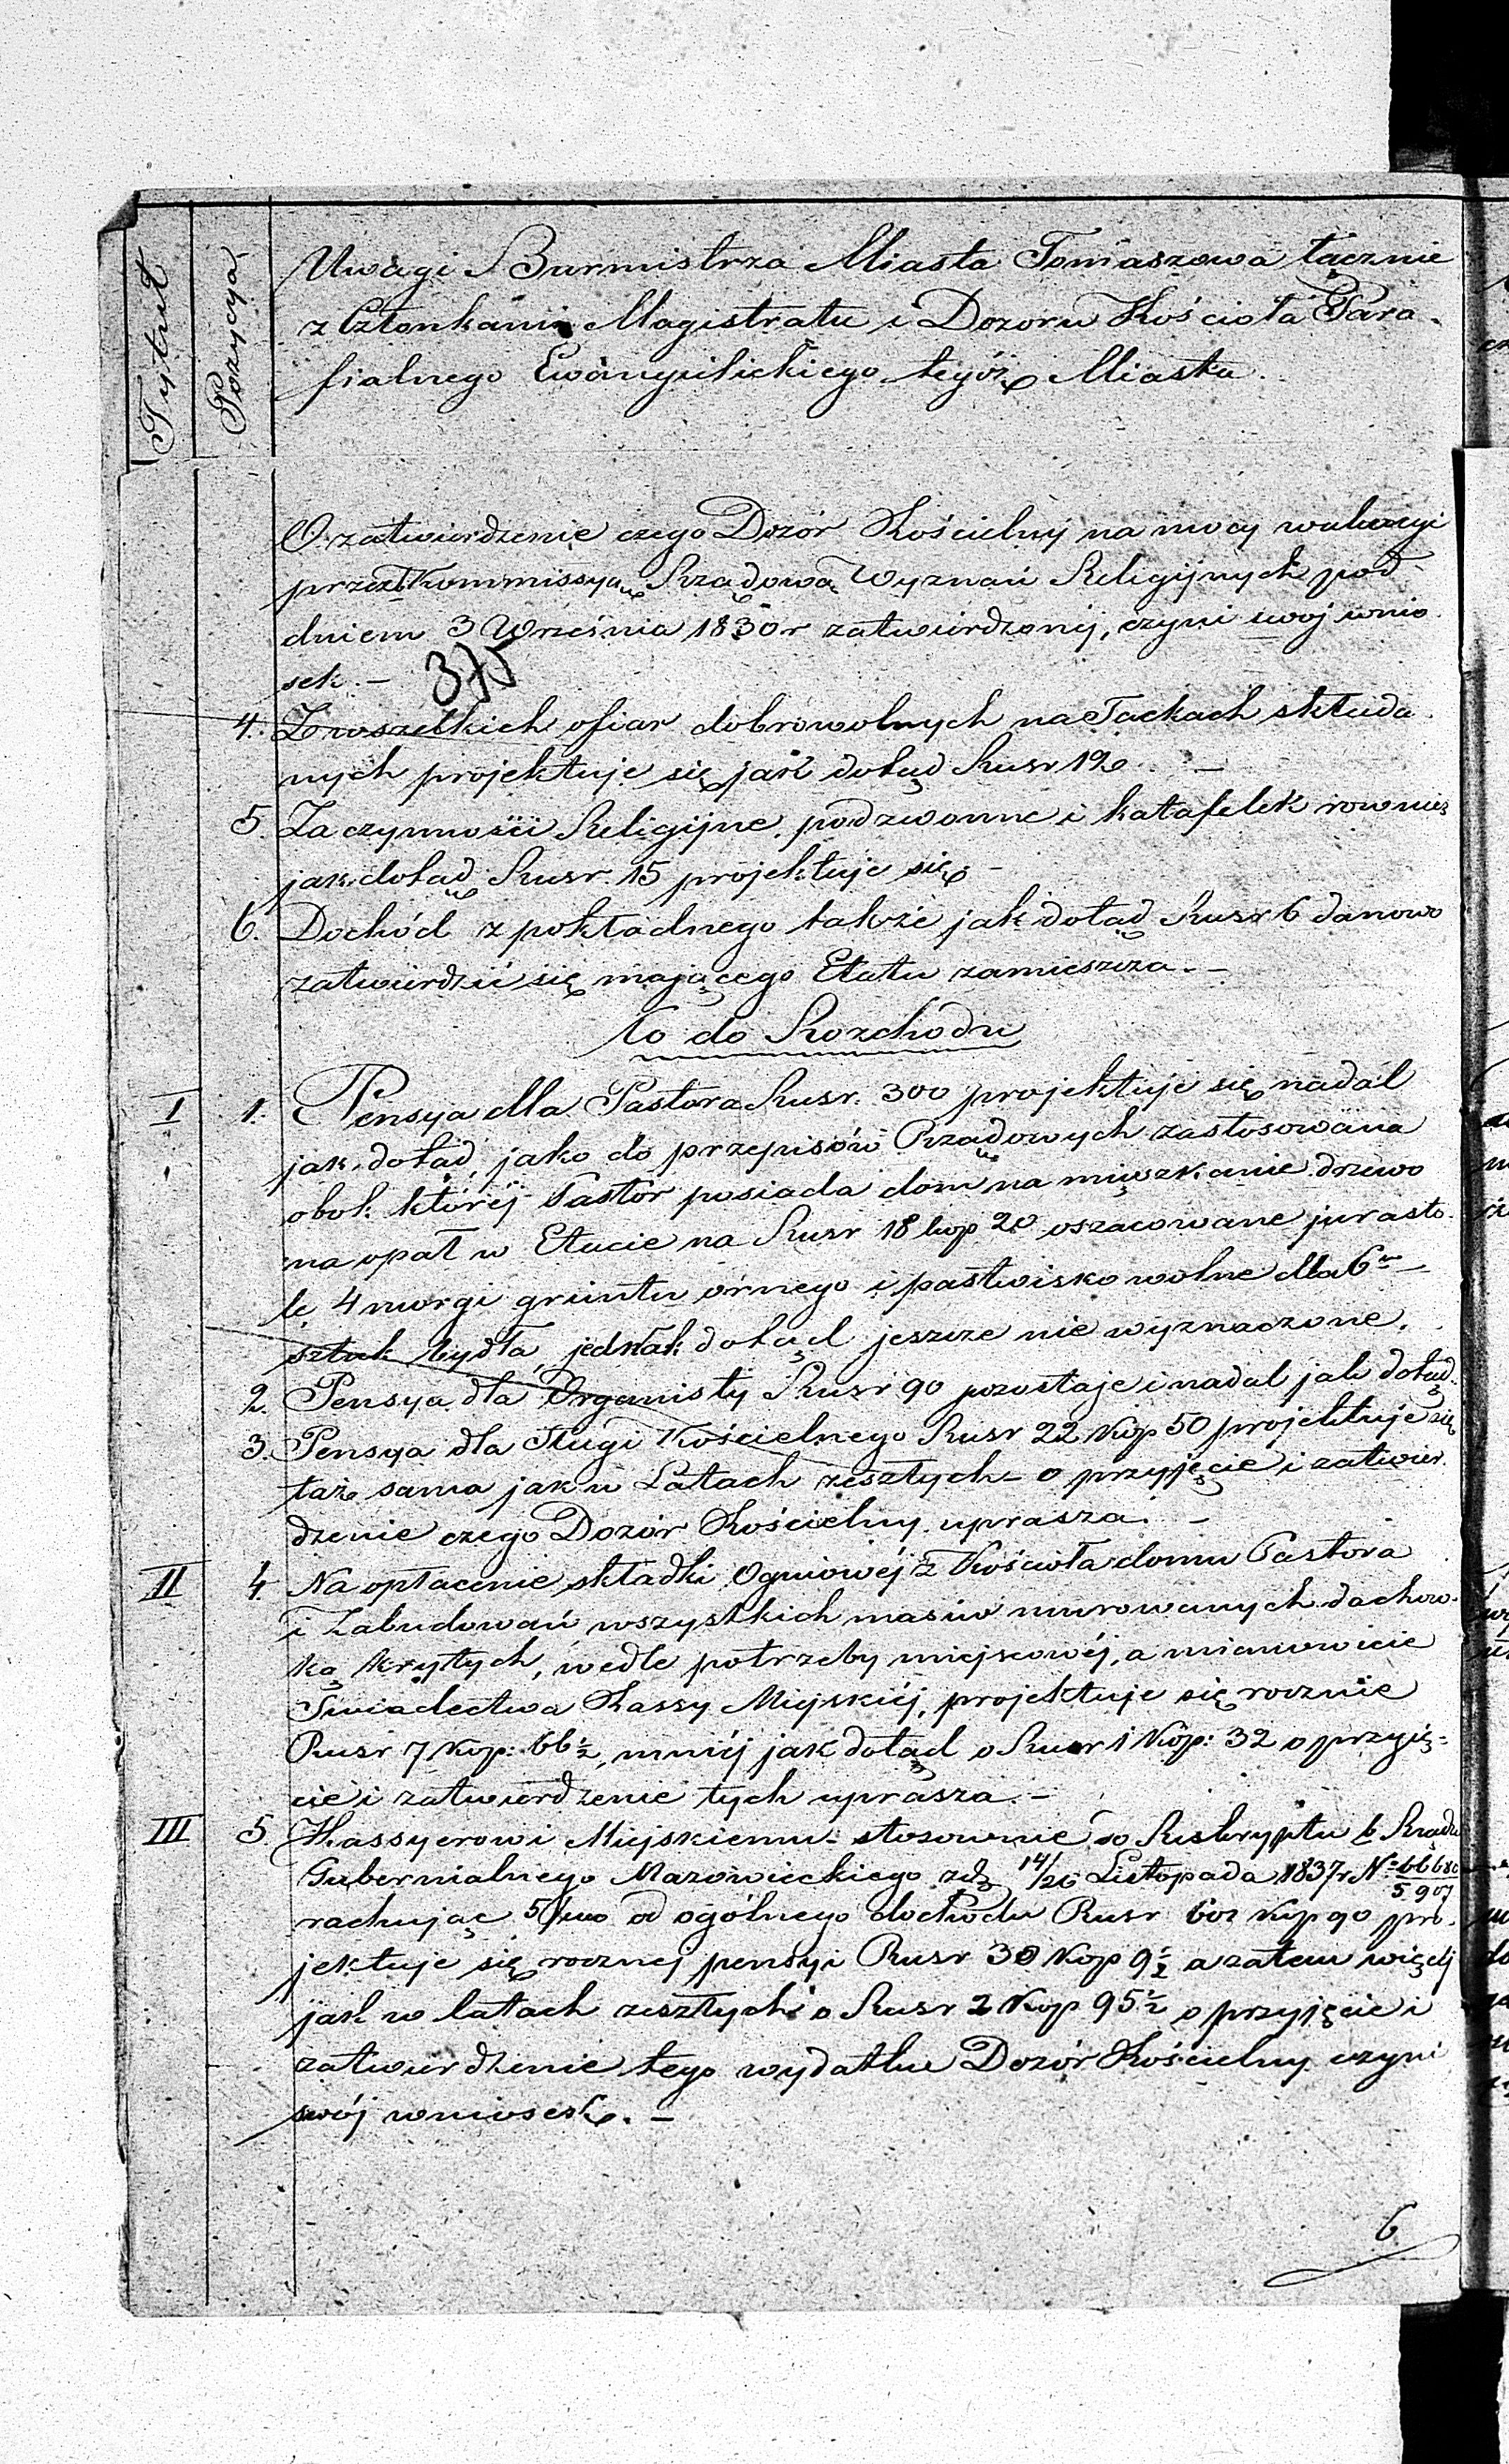 Tytuł
Pozycya
Uwagi Burmistrza Miasta Tomaszowa łącznie
z Członkami Magistratu i Dozoru Kościoła Para-
fialnego Ewangielickiego tegóż Miasta.
O zatwierdzenie czego Dozór Kościelny na mocy
przez Kommissyą Rządową Wyznań Religijnych pod
dniem 3 Września 1830 r zatwierdzonej, czyni swoj wnio
sek. –
375
4. Z wszelkich ofiar dobrowolnych na Tackach składa
nych projektuje się jak dotąd Rusr 12 –
5. Za czynności Religijne, podzwonne i katafelek rownież
jak dotąd Rusr. 15 projektuje się –
6. Dochód z pokładnego także jak dotąd Rusr 6 do nowo
zatwierdzić się mającego Etatu zamieszcza. –
Co do Rozchodu
I 1. Pensya dla Pastora Rusr. 300 projektuje się nadal
jak dotąd, jako do przepisów Rządowych zastosowana
obok której Pastor posiada dom na mieszkanie drzewo
na opał w Etacie na Rusr 18 kop 20 oszacowane jura sto-
le, 4 morgi gruntu ornego i pastwisko wolne dla 6
sztuk bydła, jednak dotąd jeszcze nie wyznaczone.
2. Pensya dla Organisty Rusr 90 pozostaje i nadal jak dotąd.
3. Pensya dla Sługi Kościelnego Rusr 22 Kop 50 projektuje się
taż sama jak w Latach zeszłych – o przyjęcie i zatwier
dzenie czego Dozór Kościelny uprasza. –
II 4. Na opłacenie składki Ogniowéj z Kościoła domu Pastora
i Zabudowań wszystkich masiw murowanych dachow-
ką krytych, wedle potrzeby miejscowéj, a mianowicie
Swiadectwa Kassy Miejskiéj, projektuje się rocznie
Rusr 7 Kop: 66½, mniéj jak dotąd o Rusr 1 Kop: 32 o przyję-
cie i zatwierdzenie tych uprasza. –
III 5. Kassyerowi Miejskiemu stosownie do Reskryptu b Rządu
Gubernialnego Mazowieckiego z d. 14/26 Listopada 1837 r N°
5907
rachując 5/ od ogólnego dochodu Rusr 602 Kop 90 pro-
jektuje się rocznej pensyi Rusr 30 Kop 9½ a zatem więcéj
jak w latach zeszłych o Rusr 2 Kop 95½ o przyjęcie i
zatwierdzenie tego wydatku Dozór Kościelny czyni
swój wniosek. –
6